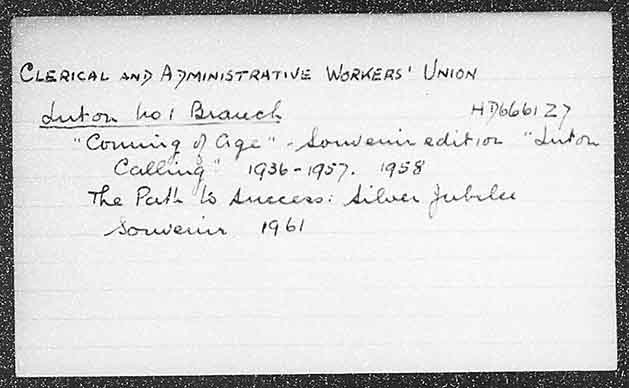 CLERICAL AND ADMINISTRATIVE WORKERS' UNION
Luton No 1 Branch HD6661Z7
"Coming of Age" - Souvenir edition "Luton
Calling" 1936-1957. 1958
The Path to Success: Silver Jubilee
Souvenir 1961